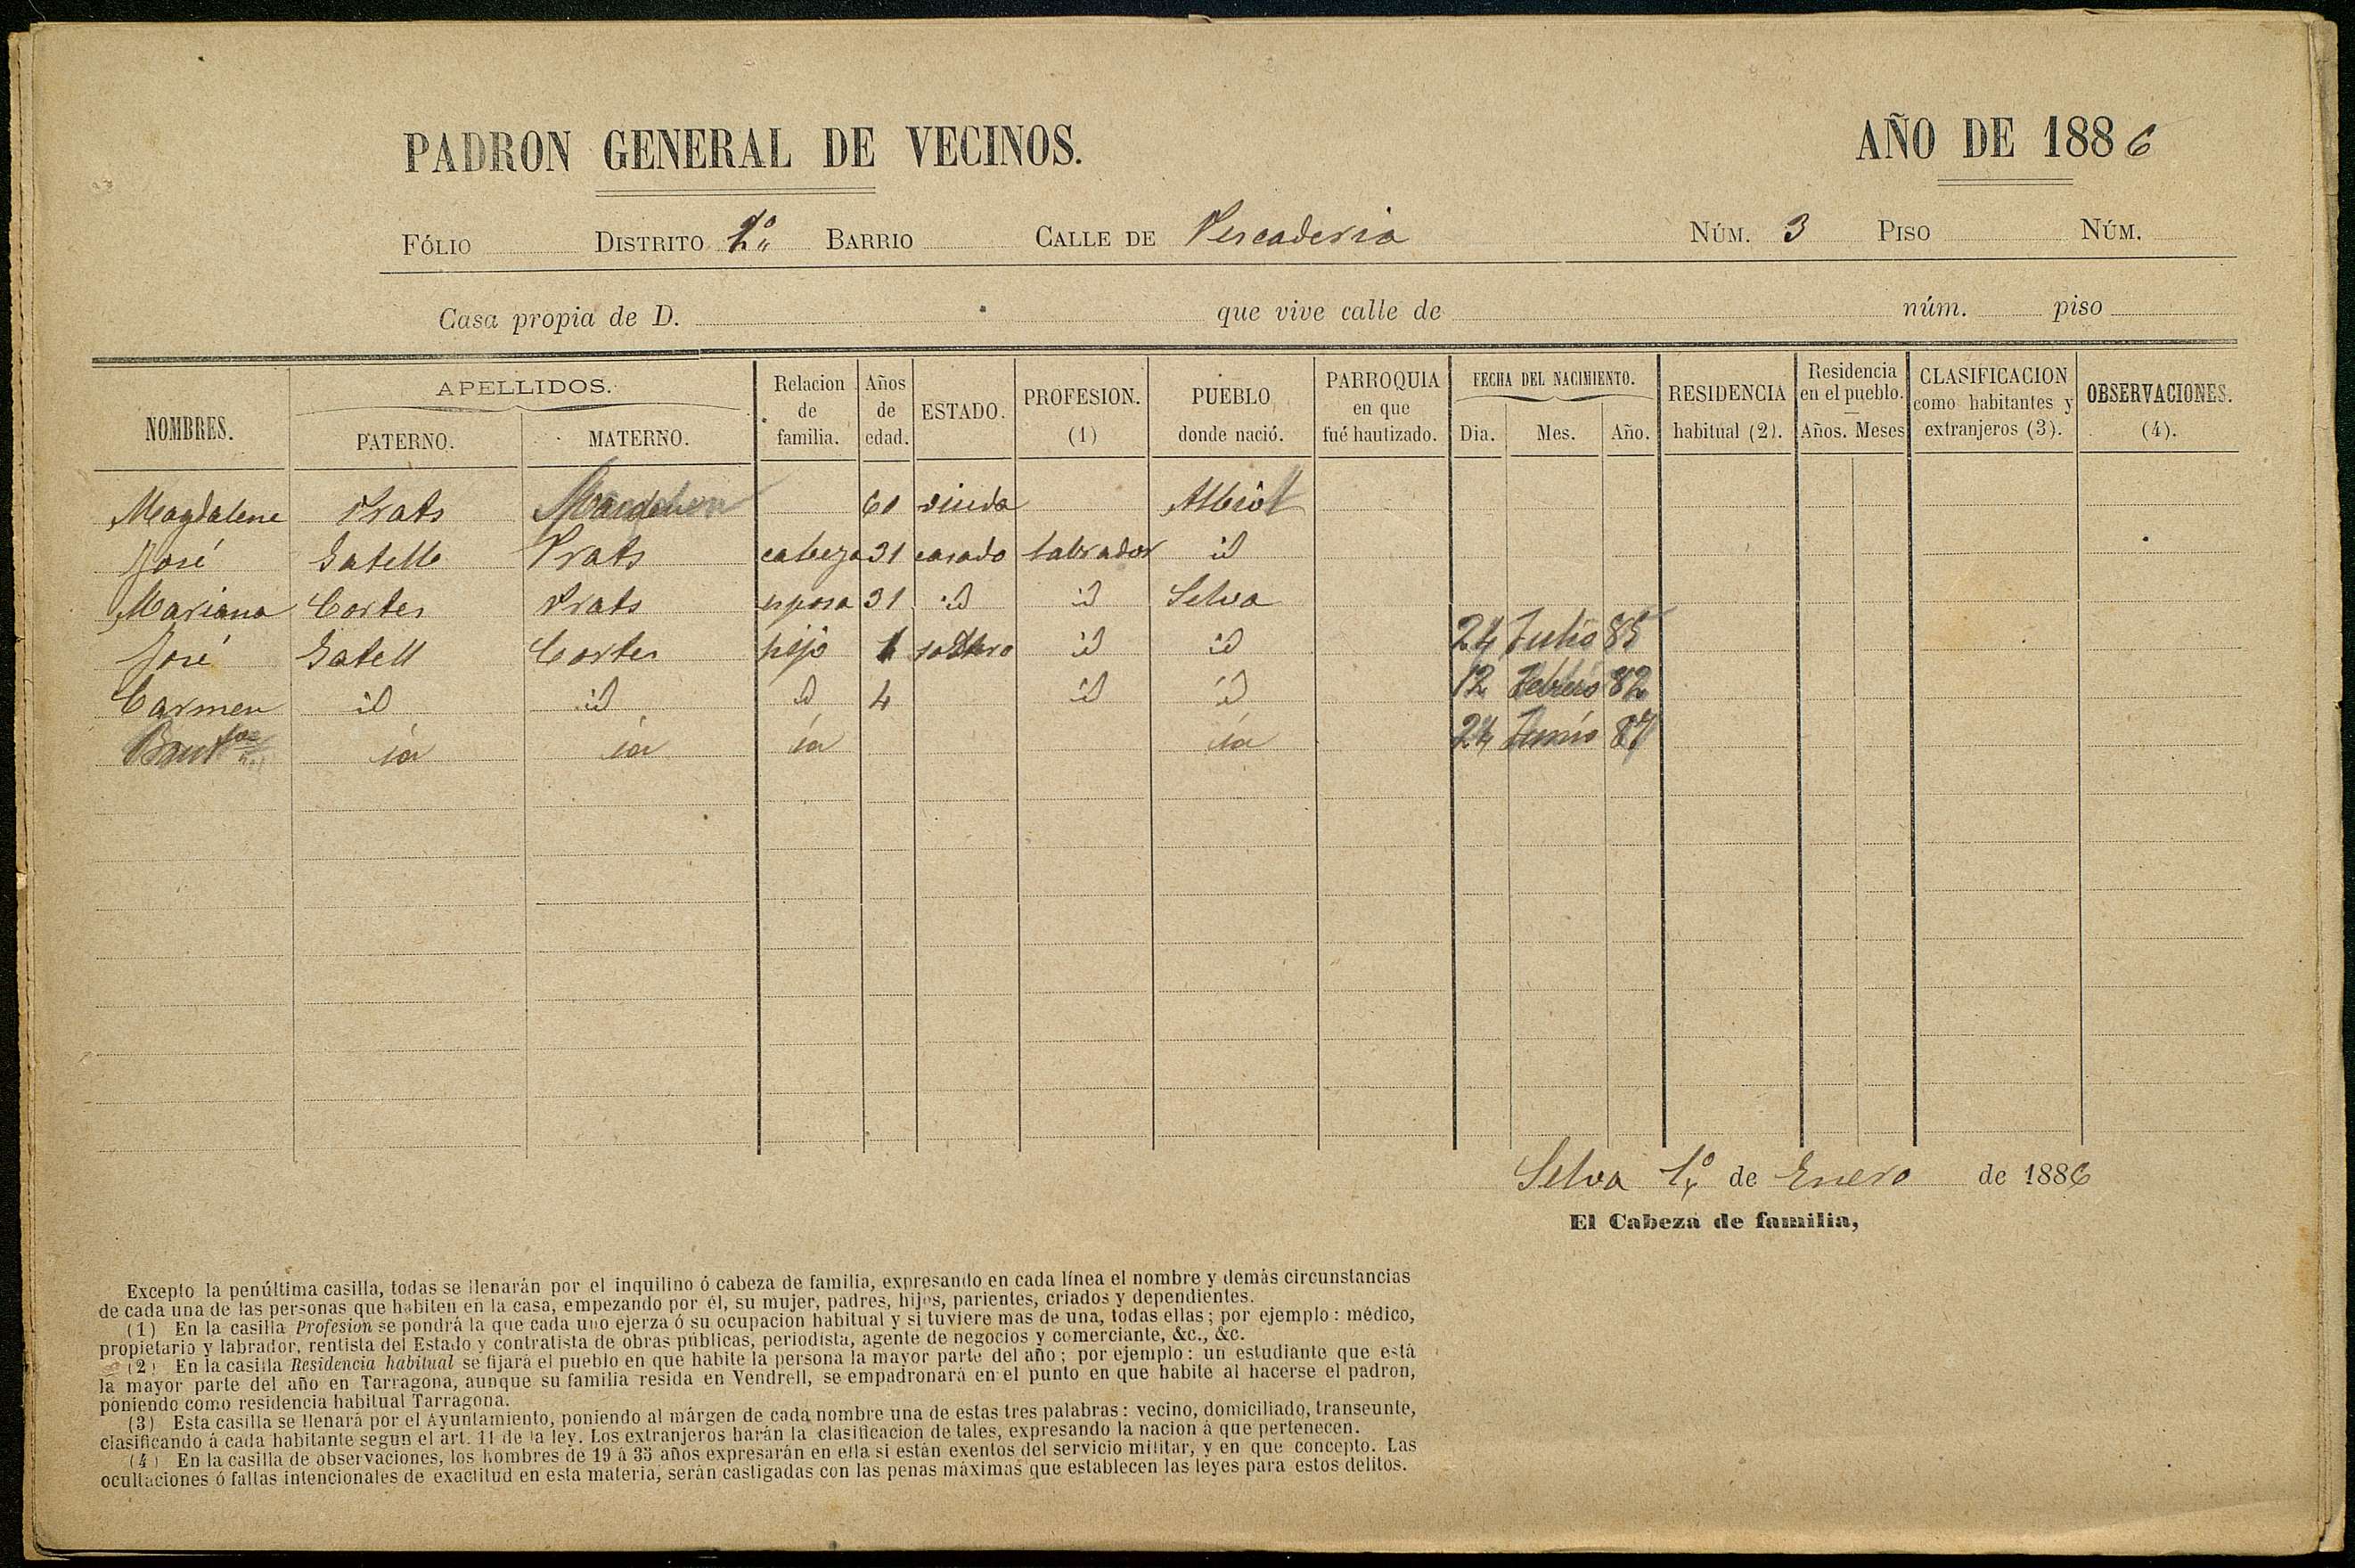 PADRON GENERAL DE VECINOS. AÑO DE 1886
FÓLIO DISTRITO 1º BARRIO CALLE DE Pescaderia NÚM. 3 PISO NÚM.
Casa propia de D. que vive calle de núm. piso
NOMBRES. APELLIDOS. PATERNO. MATERNO. Relacion de familia. Años de edad. ESTADO. PROFESION. (1) PUEBLO donde nació. PARROQUIA en que fué bautizado. FECHA DEL NACIMIENTO. Dia. Mes. Año. RESIDENCIA habitual (2). Residencia en el pueblo. Años. Meses CLASIFICACION como habitantes y extranjeros (3). OBSERVACIONES. (4).
Magdalena Prats 60 viuda Albiol
José Satelle Prats cabeza 31 casado labrador id
Mariana Cortes Prats esposa 31 id id Selva
José Satell Cortes hijo 1 soltero id id 24 Julio 85
Carmen id id id 4 id id 12 Febrero 82
id id id id 24 Junio 87
Selva 1º de Enero de 1886
El Cabeza de familia,
Excepto la penúltima casilla, todas se llenarán por el inquilino ó cabeza de familia, expresando en cada línea el nombre y demás circunstancias
de cada una de las personas que habiten en la casa, empezando por él, su mujer, padres, hijos, parientes, criados y dependientes.
(1) En la casilla Profesion se pondrá la que cada uno ejerza ó su ocupacion habitual y si tuviere mas de una, todas ellas; por ejemplo: médico,
propietario y labrador, rentista del Estado y contratista de obras públicas, periodista, agente de negocios y comerciante, &c., &c.
(2) En la casilla Residencia habitual se fijará el pueblo en que habite la persona la mayor parte del año; por ejemplo: un estudiante que está
la mayor parte del año en Tarragona, aunque su familia resida en Vendrell, se empadronará en el punto en que habite al hacerse el padron,
poniendo como residencia habitual Tarragona.
(3) Esta casilla se llenará por el Ayuntamiento, poniendo al márgen de cada nombre una de estas tres palabras: vecino, domiciliado, transeunte,
clasificando á cada habitante segun el art. 11 de la ley. Los extranjeros harán la clasificacion de tales, expresando la nacion á que pertenecen.
(4) En la casilla de observaciones, los hombres de 19 á 35 años expresarán en ella si están exentos del servicio militar, y en que concepto. Las
ocultaciones ó faltas intencionales de exactitud en esta materia, serán castigadas con las penas máximas que establecen las leyes para estos delitos.